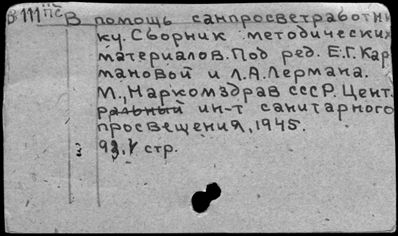 В 111 ПС
В помощь санпросветработни
ку. Сборник методических
материалов. Под ред. Е.Г. Кар
мановой и Л.А. Лермана.
М., Наркомздрав СССР. Цент
ральный ин-т санитарного
просвещения, 1945.
93. стр.